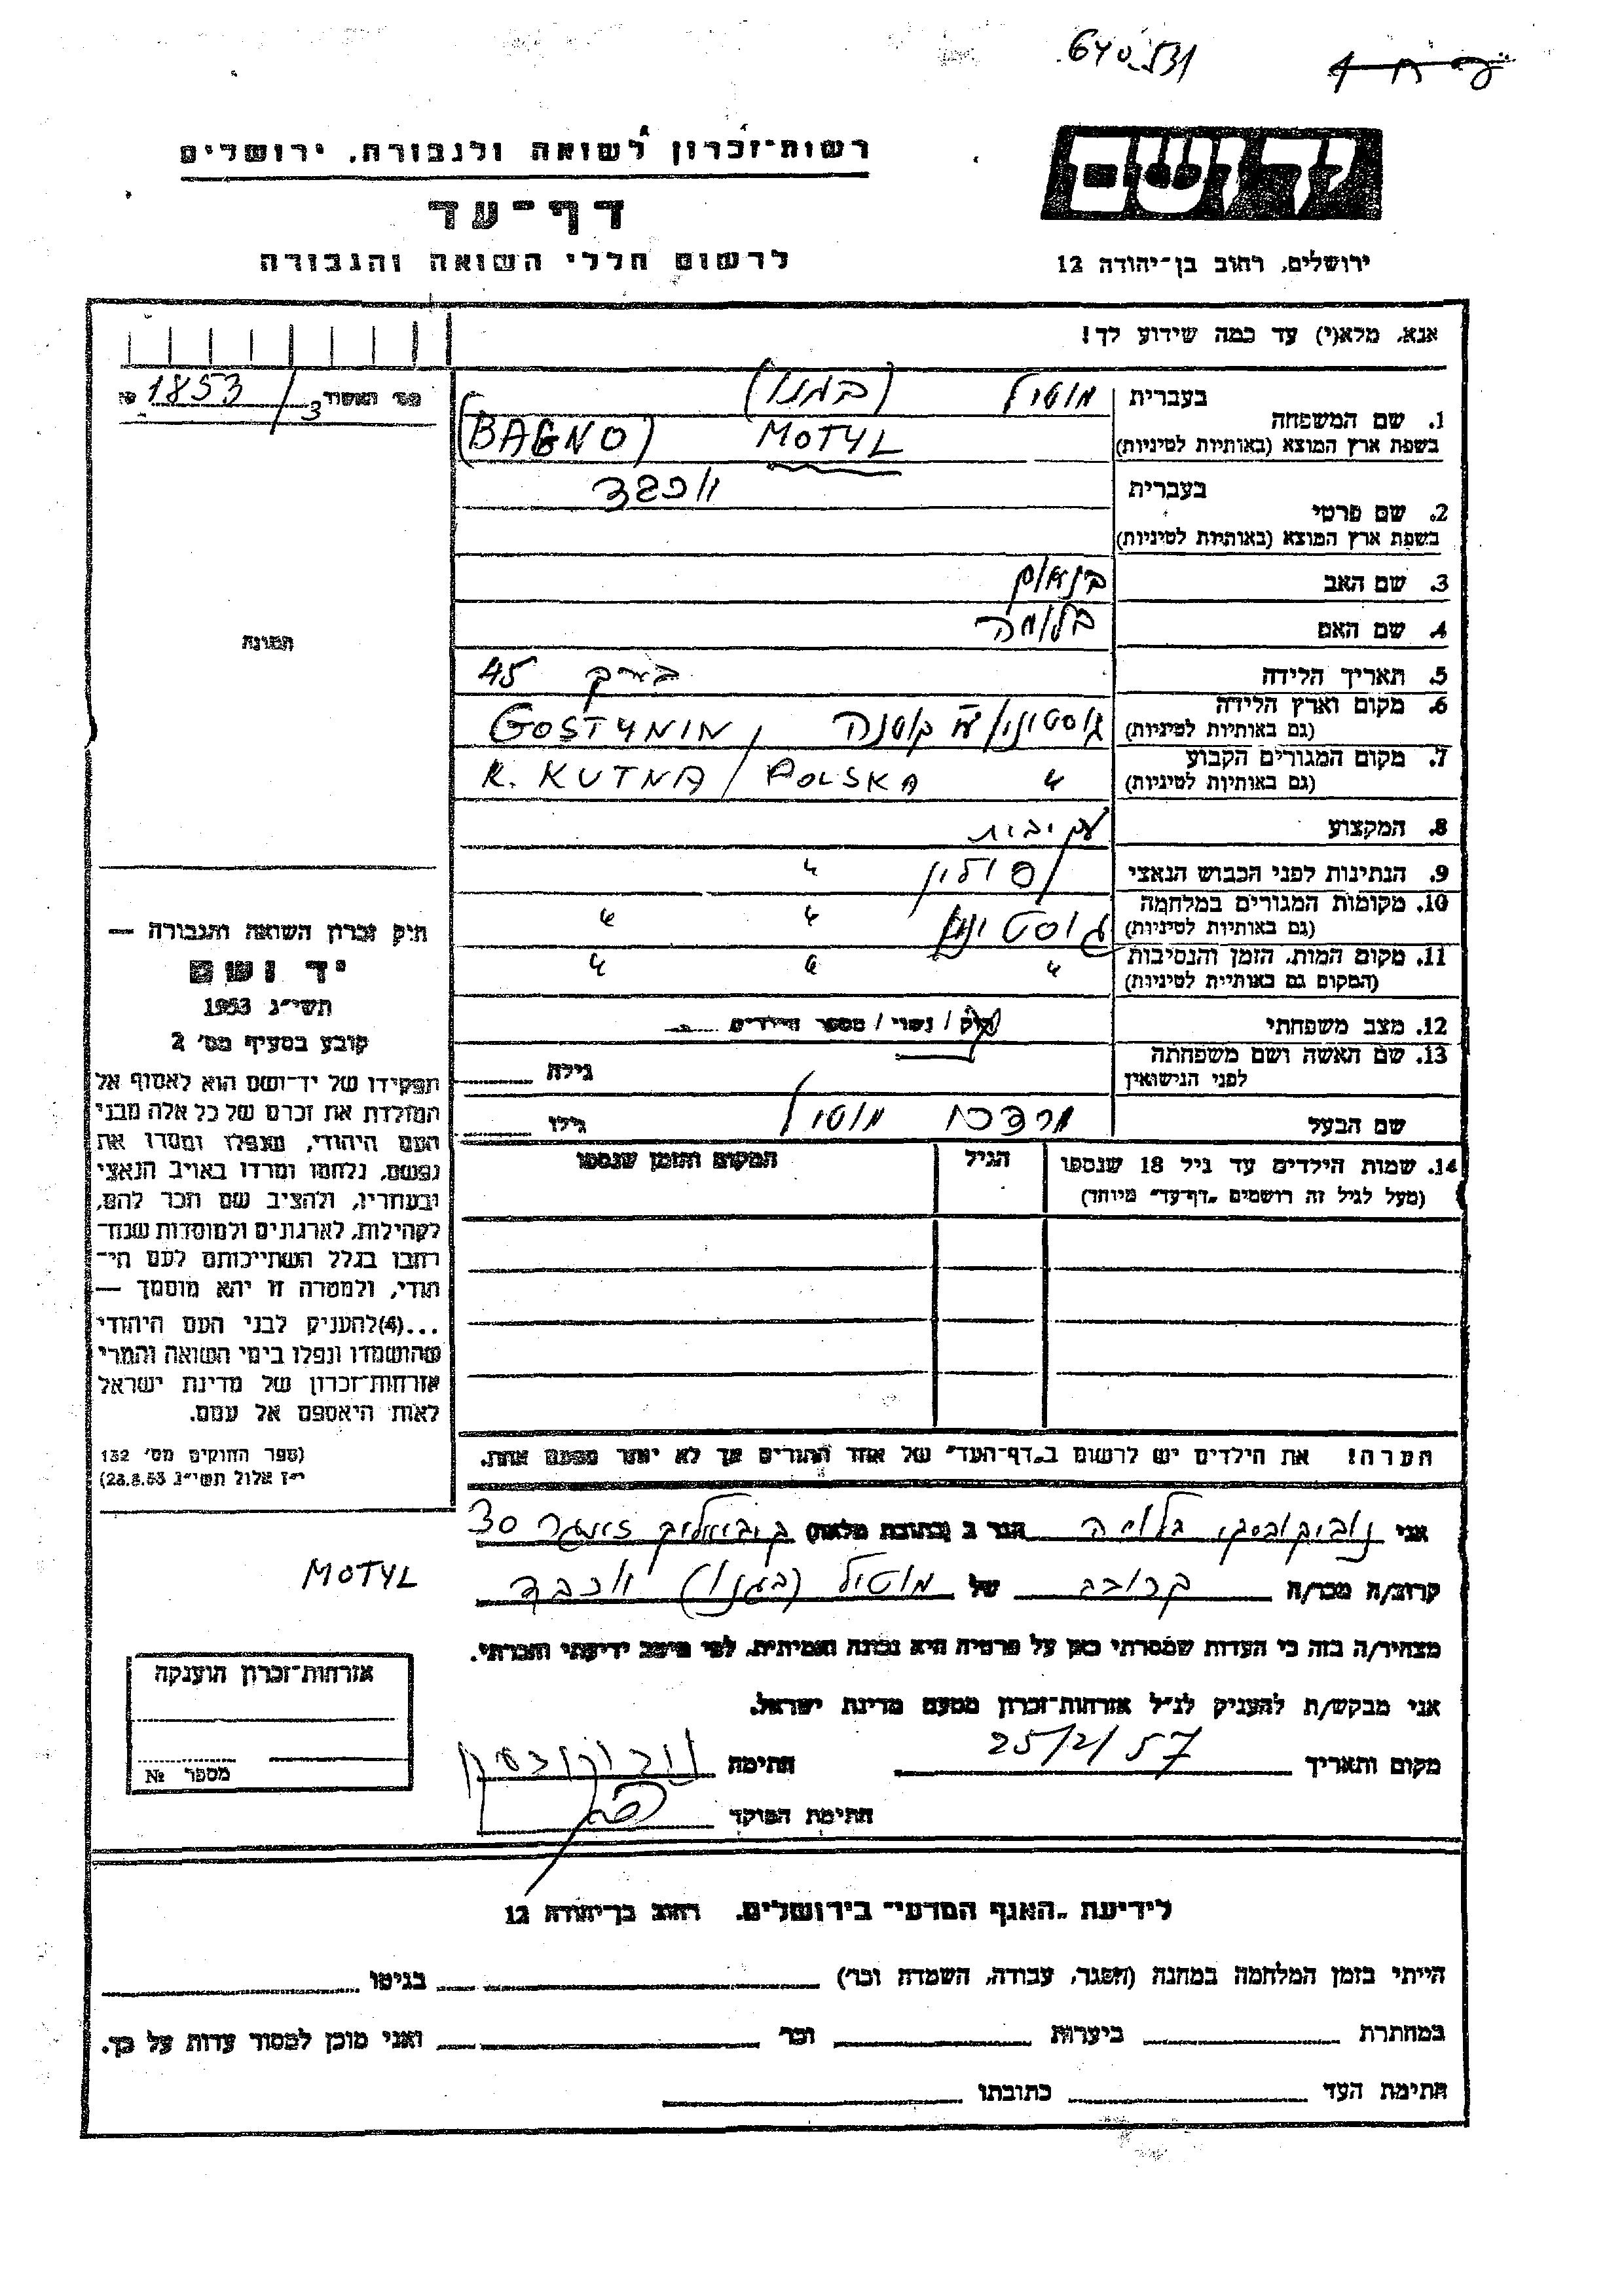 640531
יד ושם
רשות־זכרון לשואה ולגבורה, ירושלים
דף־עד
לרשום חללי השואה והגבורה
ירושלים, רחוב בן־יהודה 12
אנא, מלא(י) עד כמה שידוע לך!
1853/3
בעברית מוטיל (בגנו)
1. שם המשפחה
בשפת ארץ המוצא (באותיות לטיניות) MOTYL (BAGNO)
בעברית יוכבד
2. שם פרטי
בשפת ארץ המוצא (באותיות לטיניות)
3. שם האב
4. שם האם בלומה
5. תאריך הלידה בערך 45
6. מקום וארץ הלידה
(גם באותיות לטיניות) GOSTYNIN /
7. מקום המגורים הקבוע
(גם באותיות לטיניות) " K. KUTNA / POLSKA
8. המקצוע
9. הנתינות לפני הכבוש הנאצי פולין "
10. מקומות המגורים במלחמה
(גם באותיות לטיניות) גוסטונין " "
11. מקום המות, הזמן והנסיבות
(המקום גם באותיית לטיניות) " " "
12. מצב משפחתי רוק / נשוי / מספר הילדים
13. שם האשה ושם משפחתה
לפני הנישואין גילה
שם הבעל מרדכי מוטיל גילו
14. שמות הילדים עד גיל 18 שנספו הגיל המקום והזמן שנספו
(מעל לגיל זה רושמים "דף־עד" מיוחד)
הערה! את הילדים יש לרשום ב"דף־העד" של אחד ההורים אך לא יותר מפעם אחת.
התמונה
חיק זכרון השואה והגבורה —
יד ושם
תשי"ג 1953
קובע בסעיף מס' 2
תפקידו של יד־ושם הוא לאסוף אל
המולדת את זכרם של כל אלה מבני
העם היהודי, שנפלו ומסרו את
נפשם, נלחמו ומרדו באויב הנאצי
ובעוזריו, ולהציב שם וזכר להם,
לקהילות, לארגונים ולמוסדות שנח־
רבו בגלל השתייכותם לעם הי־
הודי, ולמטרה זו יהא מוסמך —
...(4)להעניק לבני העם היהודי
שהושמדו ונפלו בימי השואה והמרי
אזרחות־זכרון של מדינת ישראל
לאות היאספם אל עמם.
(ספר החוקים מס' 132
י"ז אלול תשי"ג 28.8.53)
אני הגר ב (כתובת מלאה) 30
קרוב/ה מכר/ה קרובה של מוטיל (בגנו) יוכבד
מצהיר/ה בזה כי העדות שמסרתי כאן על פרטיה היא נכונה ואמיתית, לפי מיטב ידיעתי והכרתי.
אני מבקש/ת להעניק לנ"ל אזרחות־זכרון מטעם מדינת ישראל.
מקום ותאריך 25/2/57 חתימה
חתימת הפוקד
MOTYL
אזרחות־זכרון הוענקה
מספר №
לידיעת "האגף המדעי" בירושלים, רחוב בן־יהודה 12
הייתי בזמן המלחמה במחנה (הסגר, עבודה, השמדה וכו') בגיטו
במחתרת ביערות וכו' ואני מוכן למסור עדות על כך.
חתימת העד כתובתו